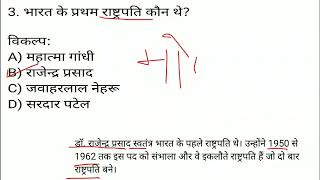 3. भारत के प्रथम राष्ट्रपति कौन थे?
विकल्प:
A) महात्मा गांधी
B) राजेन्द्र प्रसाद
C) जवाहरलाल नेहरू
D) सरदार पटेल
डॉ. राजेन्द्र प्रसाद स्वतंत्र भारत के पहले राष्ट्रपति थे। उन्होंने 1950 से
1962 तक इस पद को संभाला और वे इकलौते राष्ट्रपति हैं जो दो बार
राष्ट्रपति बने।